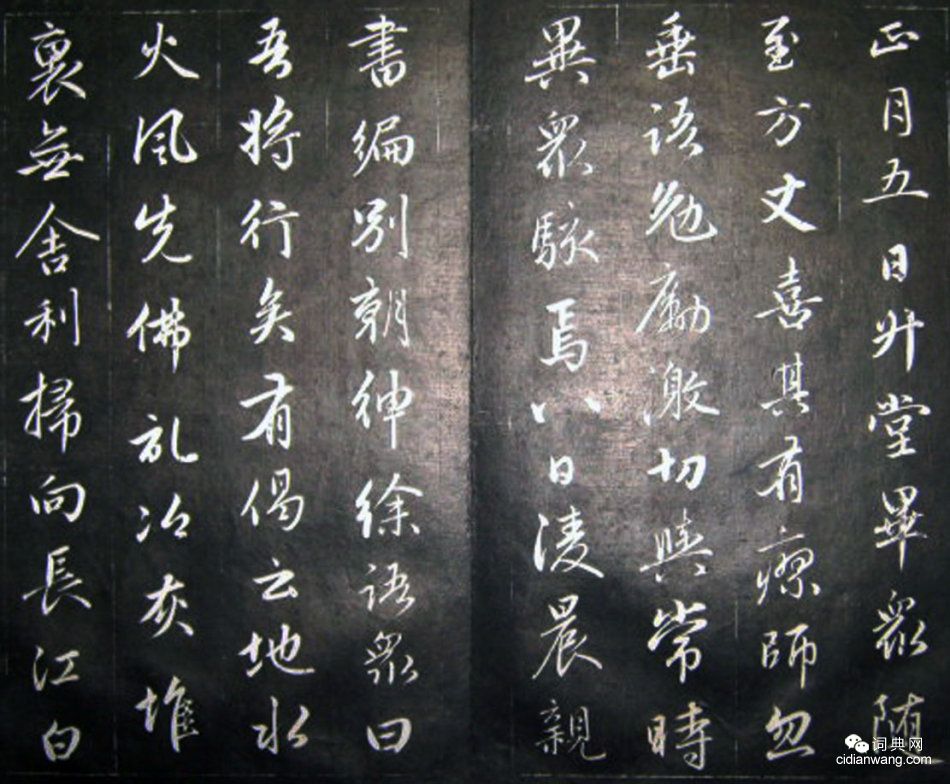 正月五日升堂畢衆随
至方丈喜其有瘳師忽
垂语勉勵激切與常時
異衆駭焉八日淩晨親
書編别朝紳徐语衆曰
吾將行矣有偈云地水
火風先佛礼冷灰堆
裏無舍利掃向長江白
词典网
cidianwang.com